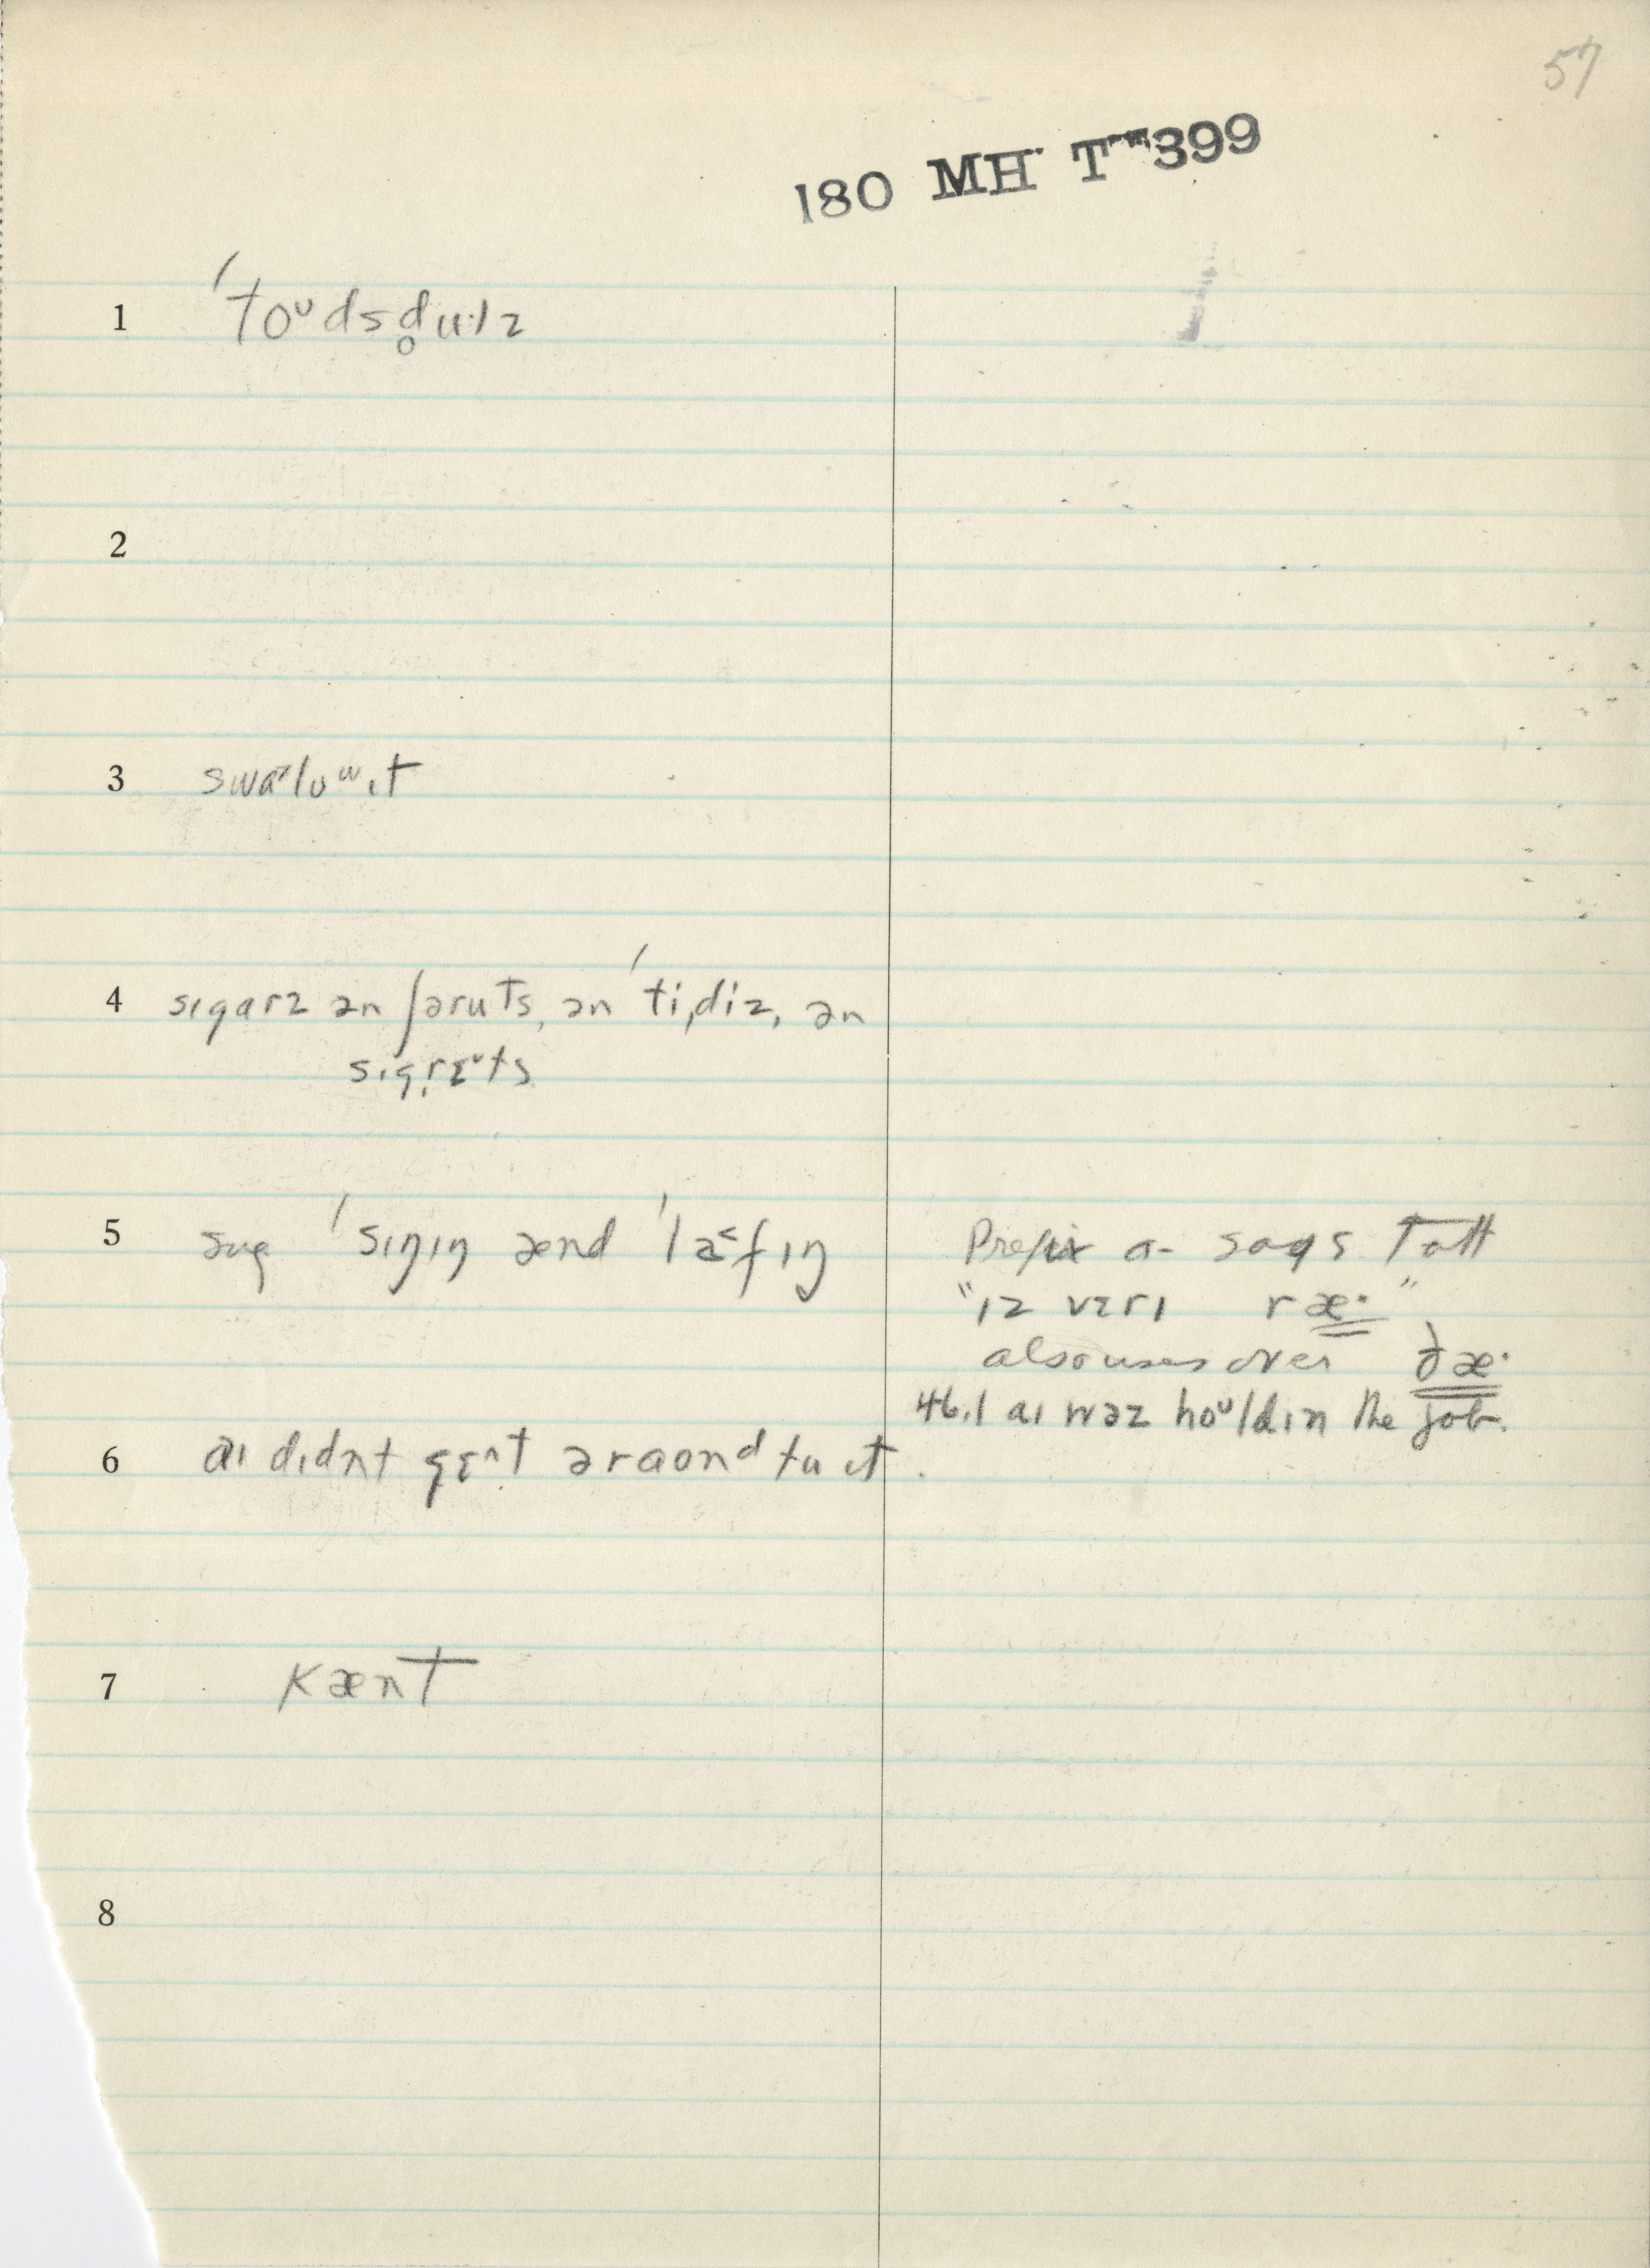 57
180 MH T 399
1 ˈtoᵘdsd̥u·lz
2
3 swaᵊloʷɪt
4 sɪgarz ən ʃəruts, ən ˈtiˌdiz, ən
sɪgrɛᵗts
5 ˈsɪŋɪŋ ænd ˈlæ˂fɪŋ
Prefix a- says Tatt
"ɪz vɛrɪ ræ·"
also uses over ðæ·
46.1 aɪ wəz hoᵘldɪn the job.
6 aɪ dɪdn̩t gɛ^t əraond tu ɪt.
7 kænt
8